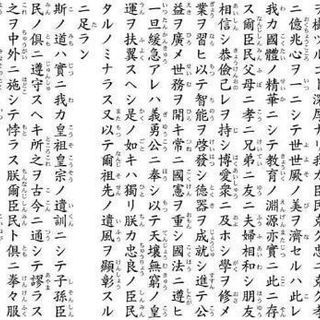 ヲ樹ツルコト深厚ナリ我カ臣民克ク忠ニ克ク
ニ億兆心ヲ一ニシテ世世厥ノ美ヲ濟セルハ此レ
我カ國體ノ精華ニシテ教育ノ淵源亦實ニ此ニ存
ス爾臣民父母ニ孝ニ兄弟ニ友ニ夫婦相和シ朋友
相信シ恭儉己レヲ持シ博愛衆ニ及ホシ學ヲ修メ
業ヲ習ヒ以テ智能ヲ啓發シ德器ヲ成就シ進テ公
益ヲ廣メ世務ヲ開キ常ニ國憲ヲ重シ國法ニ遵ヒ
一旦緩急アレハ義勇公ニ奉シ以テ天壤無窮ノ皇
運ヲ扶翼スヘシ是ノ如キハ獨リ朕カ忠良ノ臣民
タルノミナラス又以テ爾祖先ノ遺風ヲ顯彰スル
ニ足ラン
斯ノ道ハ實ニ我カ皇祖皇宗ノ遺訓ニシテ子孫臣
民ノ俱ニ遵守スヘキ所之ヲ古今ニ通シテ謬ラス
之ヲ中外ニ施シテ悖ラス朕爾臣民ト俱ニ拳々服